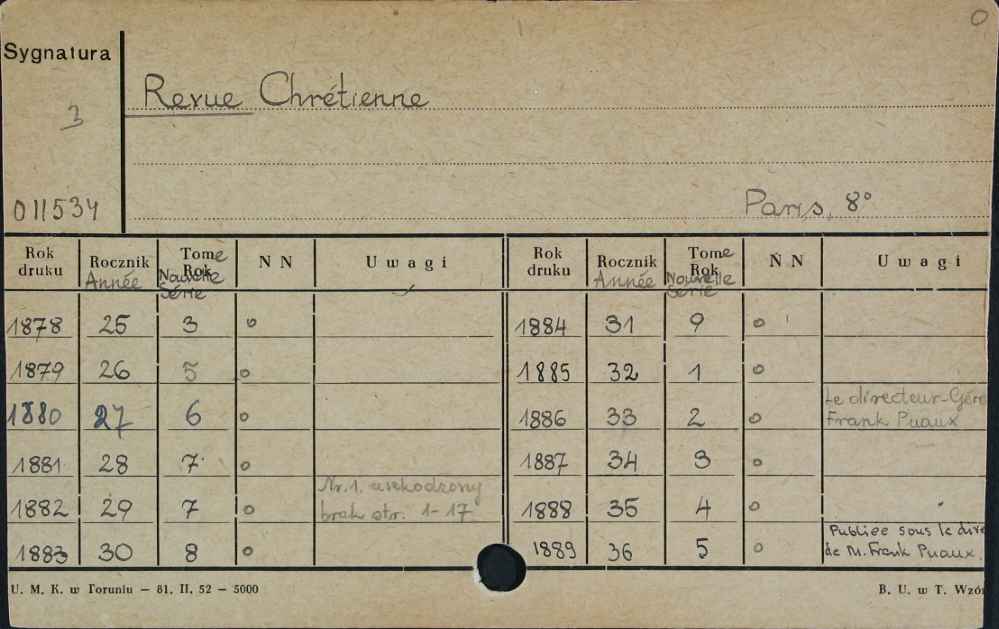 O
Sygnatura
3
Revue Chrétienne
011534
Paris, 8°
Rok druku Rocznik Année Tome Rok Nouvelle Série N N Uwagi Rok druku Rocznik Année Tome Rok Nouvelle Série N N Uwagi
1878 25 3 o 1884 31 9 o
1879 26 5 o 1885 32 1 o
1880 27 6 o 1886 33 2 o Le directeur-Géra
Frank Puaux
1881 28 7 o 1887 34 3 o
1882 29 7 o Nr. 1. uszkodzony 1888 35 4 o
brak str. 1-17
1883 30 8 o 1889 36 5 o Publiée sous la dire
de M. Frank Puaux
U. M. K. w Toruniu — 81. II. 52 — 5000
B. U. w T. Wzór